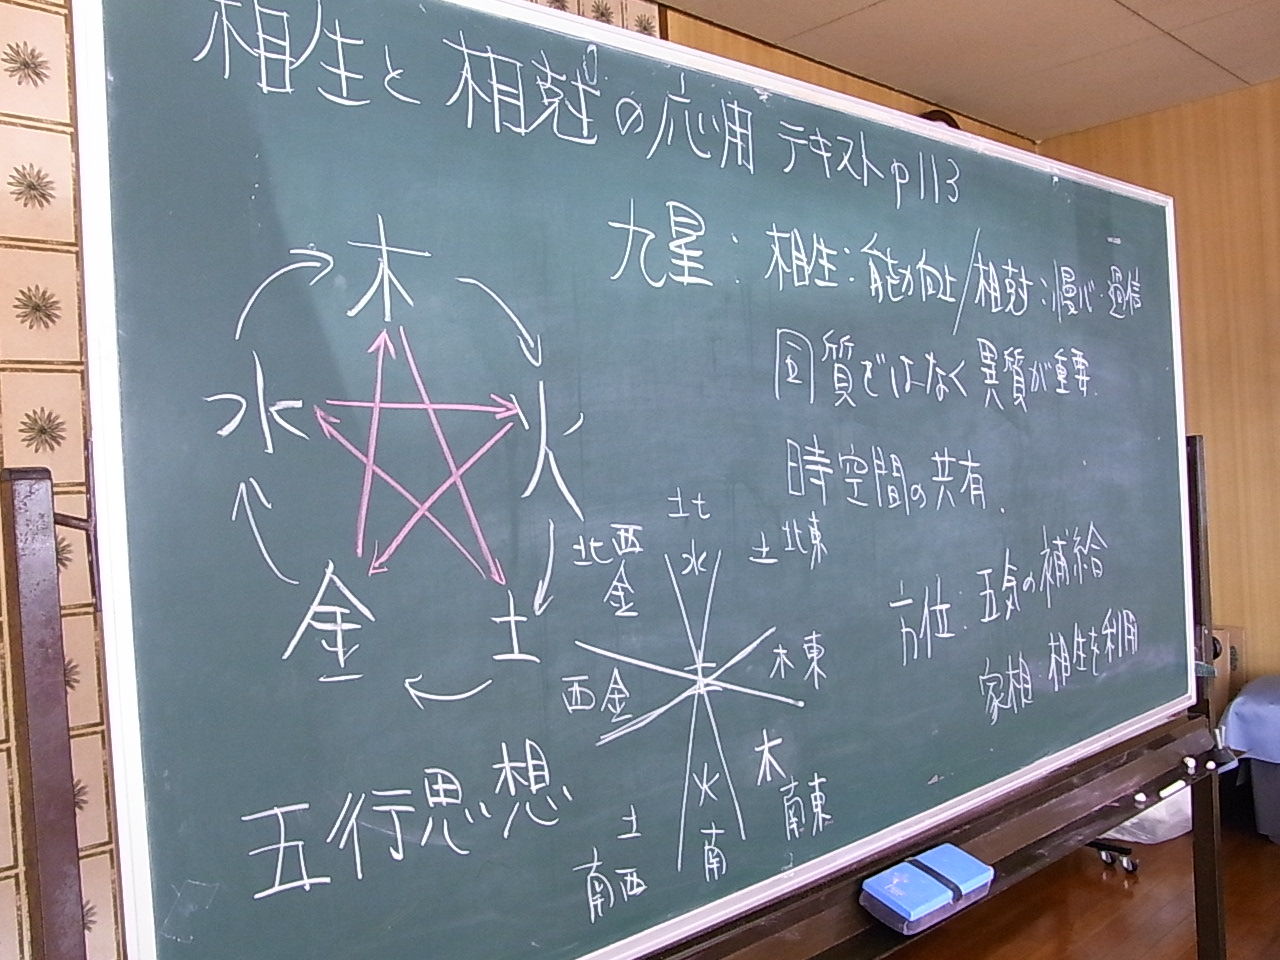 相生と相剋の応用 テキストp113
九星：相生：能力向上/相剋：慢心・過信
同質ではなく異質が重要.
時空間の共有.
方位：五気の補給
家相：相生を利用
木
水
火
金
土
五行思想
北
水
土 北東
北西
金
木 東
西 金
土
木
南東
火
南
土
南西